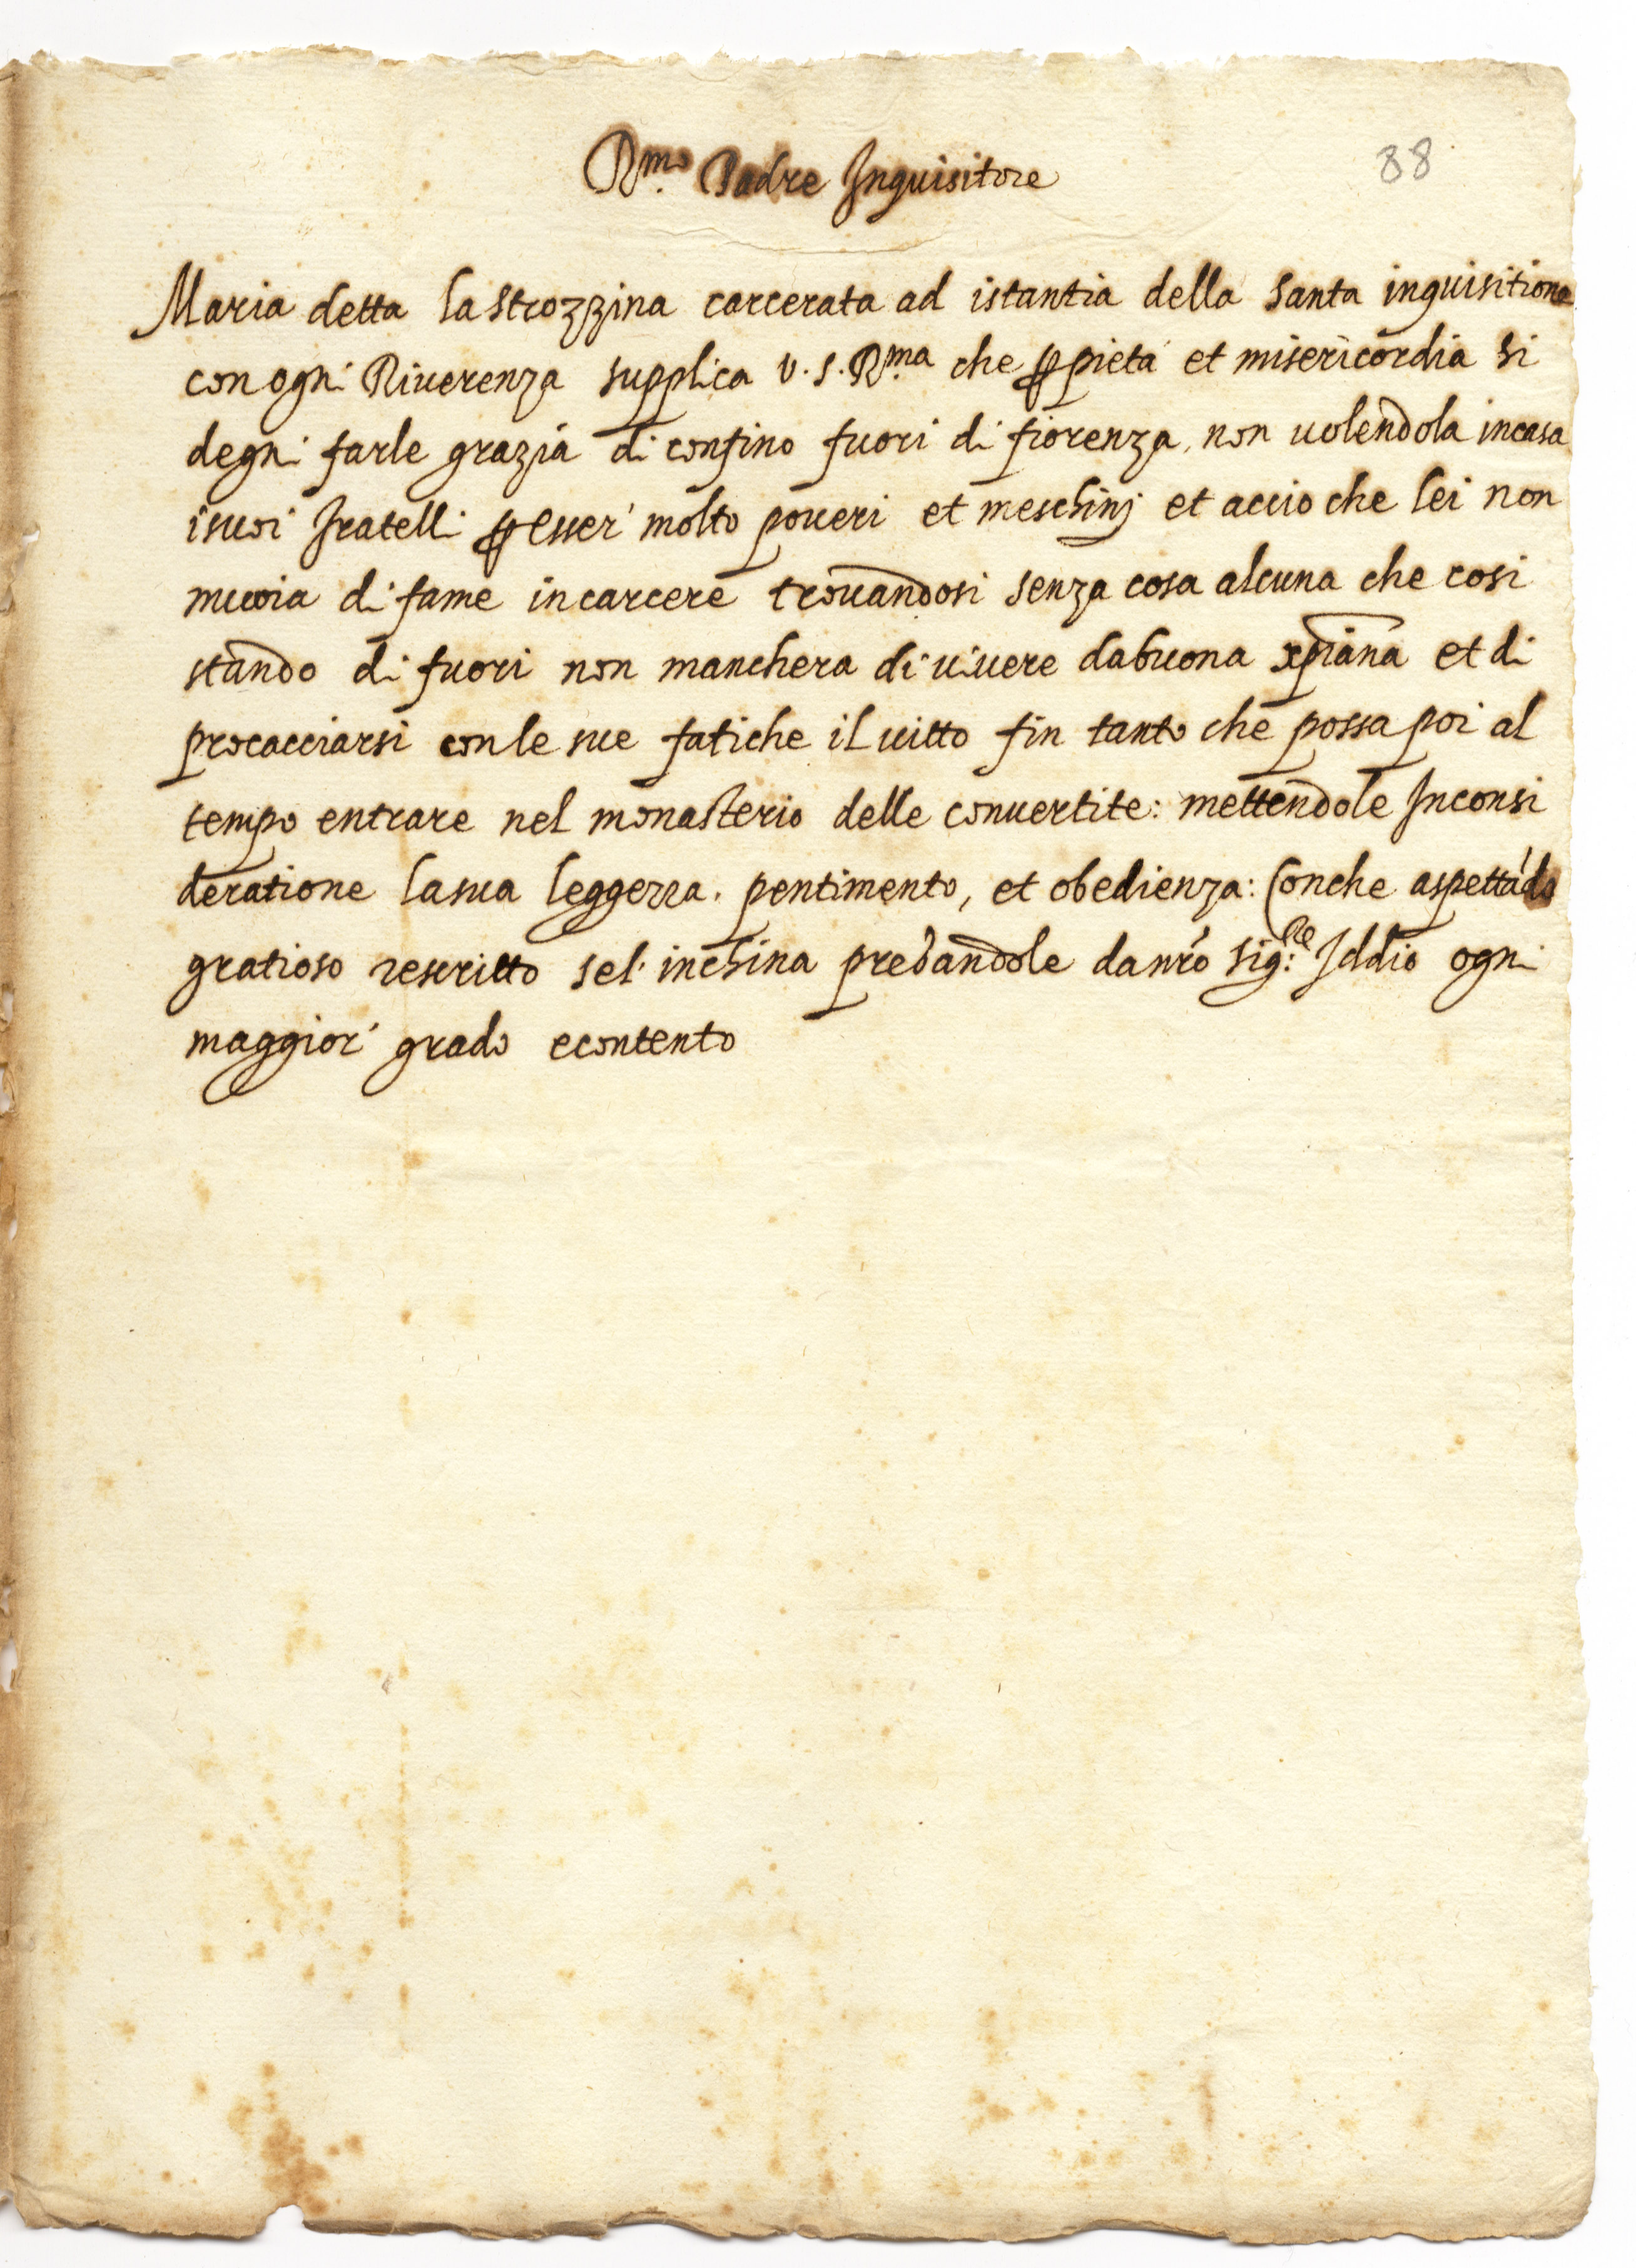 R.mo Padre Inquisitore
88
Maria detta la strozzina carcerata ad istantia della santa inquisitione
con ogni Riuerenza supplica v. s. R.ma che ꝑ pieta et misericordia si
degni farle grazia di confino fuori di fiorenza, non uolendola incasa
isuoi fratelli ꝑ esser' molto poueri et meschinj et accio che lei non
muoia di fame incarcere trouandosi senza cosa alcuna che cosi
stando di fuori non manchera di uiuere dabuona xp̄iana et di
procacciarsi conle sue fatiche il uitto fin tanto che possa poi al
tempo entrare nel monasterio delle conuertite: mettendole Inconsi
deratione lasua leggerza. pentimento, et obedienza: Conche aspettādo
gratioso rescritto sel' inchina predandole danrō sig:re Iddio ogni
maggior' grado econtento